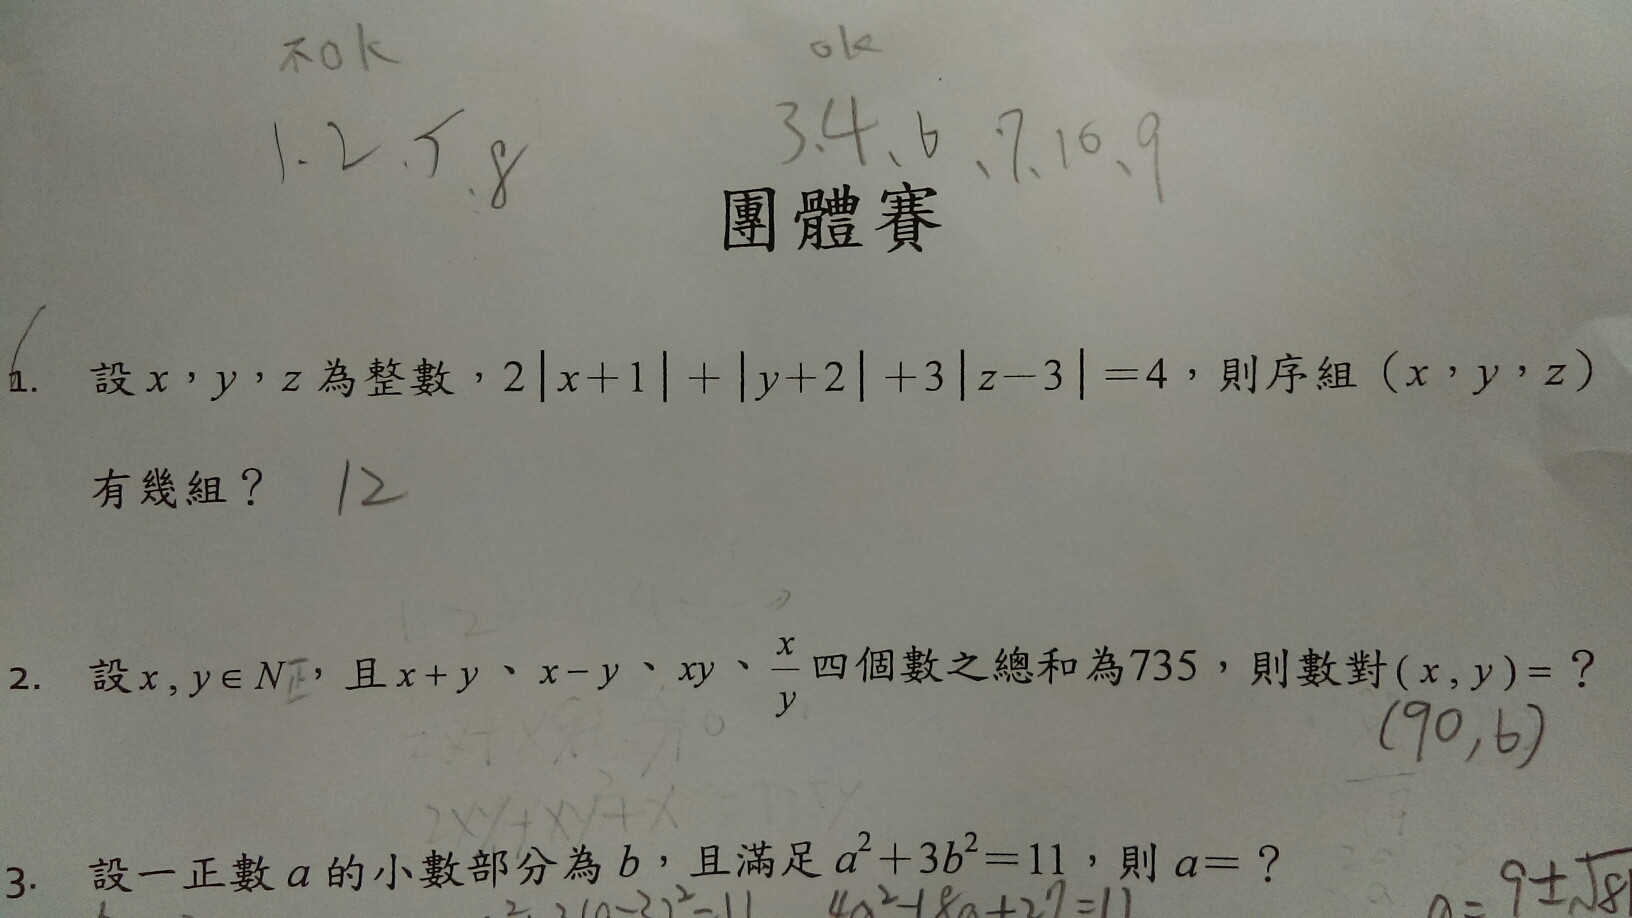 不ok
ok
1.2、5、8
3、4、6、7、10、9
團體賽
1. 設x，y，z為整數，2|x+1|+|y+2|+3|z−3|=4，則序組（x，y，z）
有幾組？ 12
2. 設x,y∈N正，且x+y、x−y、xy、x/y四個數之總和為735，則數對(x,y)=？
(90,6)
2xy+xy²+x=735y
3. 設一正數a的小數部分為b，且滿足a²+3b²=11，則a=？
4a²-18a+27=11